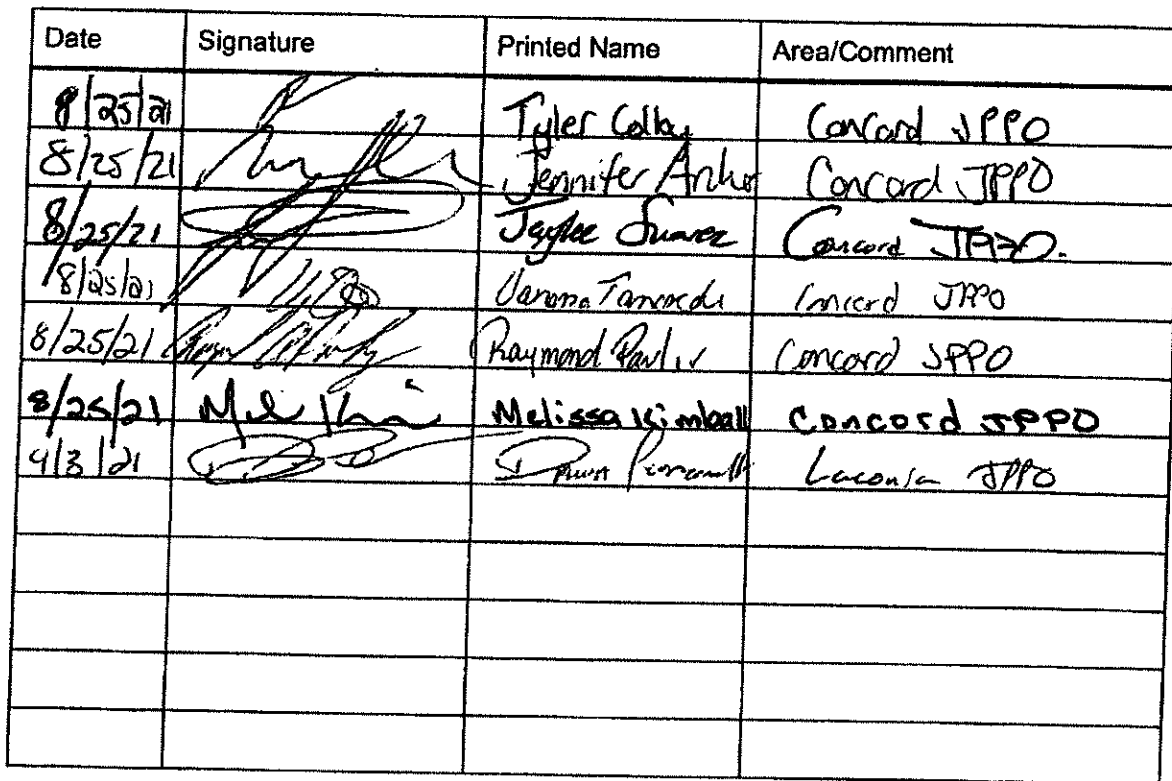 Date Signature Printed Name Area/Comment
8/25/21 Tyler Colby Concord JPPO
8/25/21 Jennifer Concord JPPO
8/25/21 Jaylee Suarez Concord JPPO.
8/25/21 Concord JPPO
8/25/21 Raymond Concord JPPO
8/25/21 Melissa Kimball Concord JPPO
9/3/21 Dawn Laconia JPPO